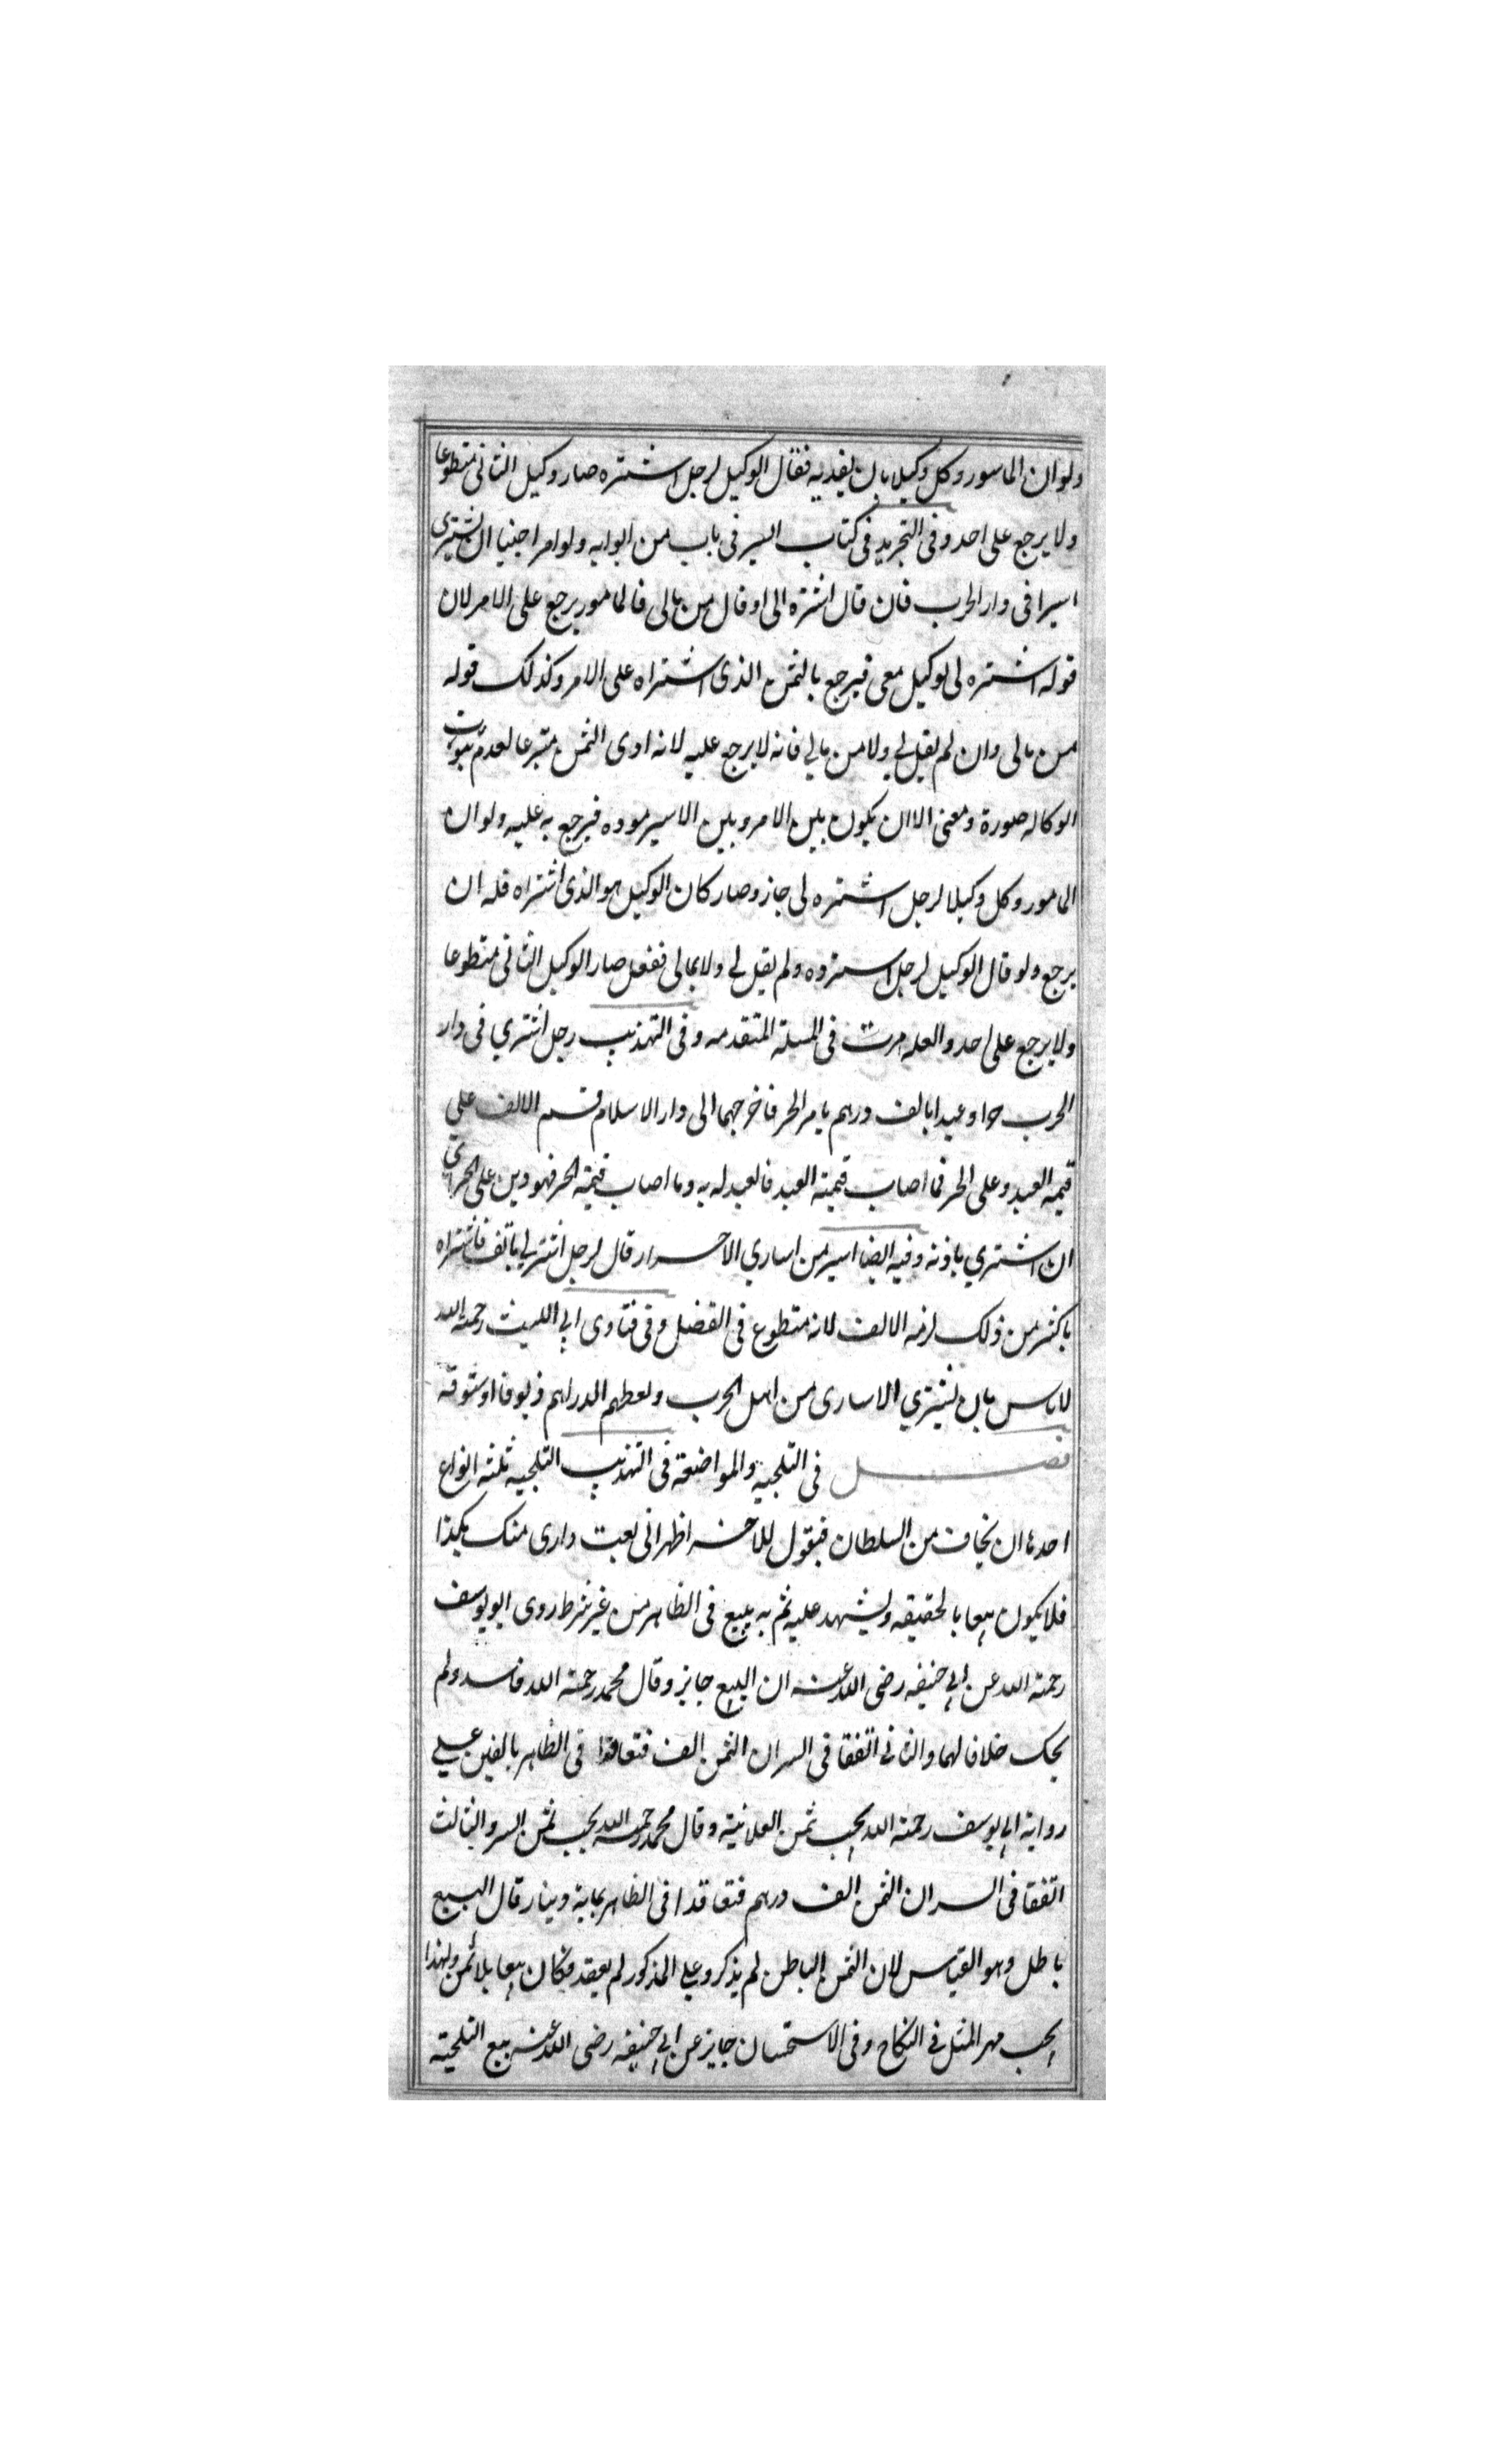 ولو ان الماسور وكل وكيلا بان يفديه فقال الوكيل لرجل اشتره صار وكيل الثانى متطوعا
ولا يرجع على احد وفى التجريد فى كتاب السير فى باب من ابوابه ولو امر اجنبيا ان يشترى
اسيرا فى دار الحرب فان قال اشتره لى او قال من مالى فالمامور يرجع على الامر لان
قوله اشتره لى توكيل معنى فيرجع بالثمن الذى اشتراه على الامر وكذلك قوله
من مالى وان لم يقل لي ولا من مالي فانه لا يرجع عليه لانه ادى الثمن متبرعا لعدم ثبوت
الوكاله صورة ومعنى الا ان يكون بين الامر وبين الاسير موده فيرجع به عليه ولو ان
المامور وكل وكيلا لرجل اشتره لى جاز وصار كان الوكيل هو الذى اشتراه فله ان
يرجع ولو قال الوكيل لرجل اشتروه ولم يقل لى ولا بمالى ففعل صار الوكيل الثانى متطوعا
ولا يرجع على احد والعله مرت فى المسلة المتقدمه وفى التهذيب رجل اشتري فى دار
الحرب حرا وعبدا بالف درهم بامر الحر فاخرجهما الى دار الاسلام قسم الالف على
قيمه العبد وعلى الحر فما اصاب قيمته العبد فالعبد له به وما اصاب قيمة الحر فهو دين على الحر
ان اشتري باذنه وفيه ايضا اسير من اساري الاحرار قال لرجل اشتر لي بالف فاشتراه
باكثر من ذلك لزمه الالف لانه متطوع فى الفضل وفى فتاوى ابي الليث رحمة الله
لا باس بان يشتري الاسارى من اهل الحرب ويعطهم الدراهم زيوفا او ستوقه
فصل فى التلجيه والمواضعة فى التهذيب التلجيه ثلثه انواع
احدها ان يخاف من السلطان فيقول للاخر اظهر انى بعت دارى منك بكذا
فلا يكون بيعا بالحقيقه ويشهد عليه ثم به يبيع فى الظاهر من غير شرط روى ابو يوسف
رحمة الله عن ابي حنيفه رضى الله عنه ان البيع جايز وقال محمد رحمة الله فاسد ولم
يحك خلافا لهما والثانى اتفقا فى السر ان الثمن الف فتعاقدا فى الظاهر بالفين على
رواية ابي يوسف رحمة الله يجب ثمن العلانية وقال محمد رحمه الله يجب ثمن السر والثالث
اتفقا فى السر ان الثمن الف درهم فتعاقدا فى الظاهر بماية دينار قال البيع
باطل وهو القياس لان الثمن الباطن لم يذكر وعلى المذكور لم يعقد فكان بيعا بلا ثمن ولهذا
يجب مهر المثل فى النكاح وفى الاستحسان جايز عن ابي حنيفه رضى الله عنه بيع التلجية